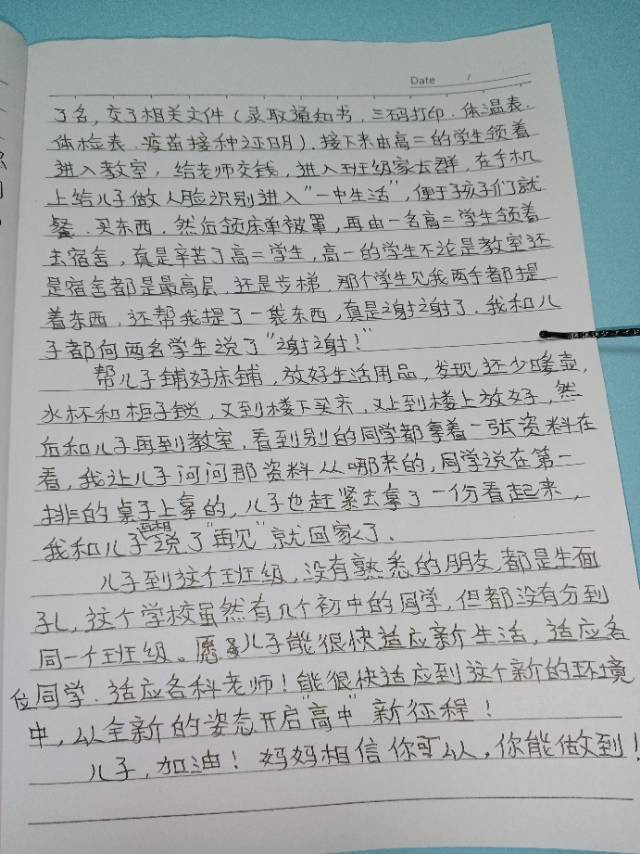 Date /
了名，交了相关文件（录取通知书、三码打印、体温表、
体检表、疫苗接种证明）。接下来由高二的学生领着
进入教室，给老师交钱，进入班级家长群，在手机
上给儿子做人脸识别进入“一中生活”，便于孩子们就
餐、买东西，然后领床单被罩，再由一名高二学生领着
去宿舍，真是辛苦了高二学生，高一的学生不论是教室还
是宿舍都是最高层，还是步梯，那个学生见我两手都提
着东西，还帮我提了一袋东西，真是谢谢了，我和儿
子都向两名学生说了“谢谢！”
帮儿子铺好床铺，放好生活用品，发现还少暖壶，
水杯和柜子锁，又到楼下买齐，又上到楼上放好，然
后和儿子再到教室，看到别的同学都拿着一张资料在
看，我让儿子问问那资料从哪来的，同学说在第一
排的桌子上拿的，儿子也赶紧去拿了一份看起来，
我和儿子互相说了“再见”就回家了。
儿子到这个班级，没有熟悉的朋友，都是生面
孔，这个学校虽然有几个初中的同学，但都没有分到
同一个班级。愿儿子能很快适应新生活，适应各
位同学、适应各科老师！能很快适应到这个新的环境
中，以全新的姿态开启“高中”新征程！
儿子，加油！妈妈相信你可以，你能做到！